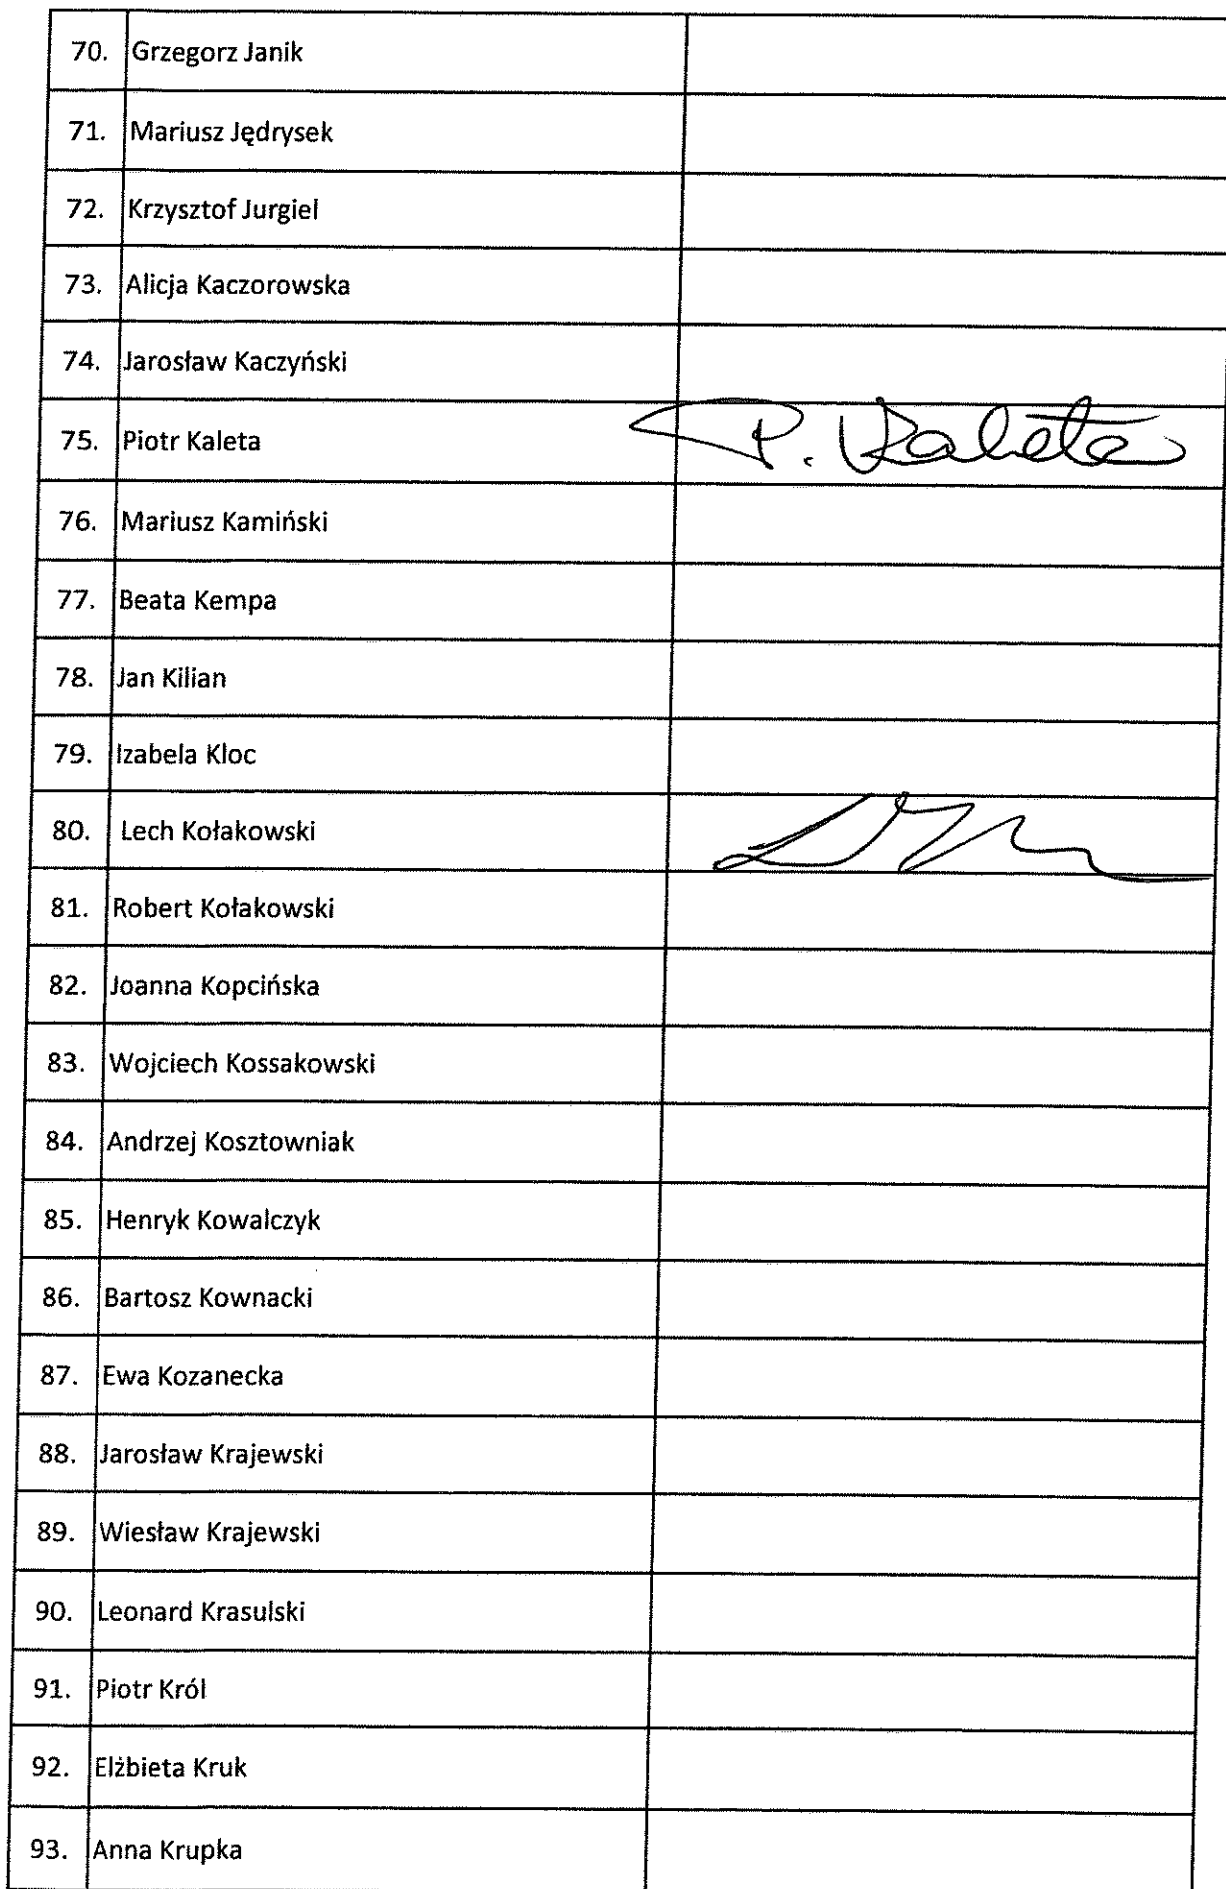 70. Grzegorz Janik
71. Mariusz Jędrysek
72. Krzysztof Jurgiel
73. Alicja Kaczorowska
74. Jarosław Kaczyński
75. Piotr Kaleta P. Kaleta
76. Mariusz Kamiński
77. Beata Kempa
78. Jan Kilian
79. Izabela Kloc
80. Lech Kołakowski
81. Robert Kołakowski
82. Joanna Kopcińska
83. Wojciech Kossakowski
84. Andrzej Kosztowniak
85. Henryk Kowalczyk
86. Bartosz Kownacki
87. Ewa Kozanecka
88. Jarosław Krajewski
89. Wiesław Krajewski
90. Leonard Krasulski
91. Piotr Król
92. Elżbieta Kruk
93. Anna Krupka